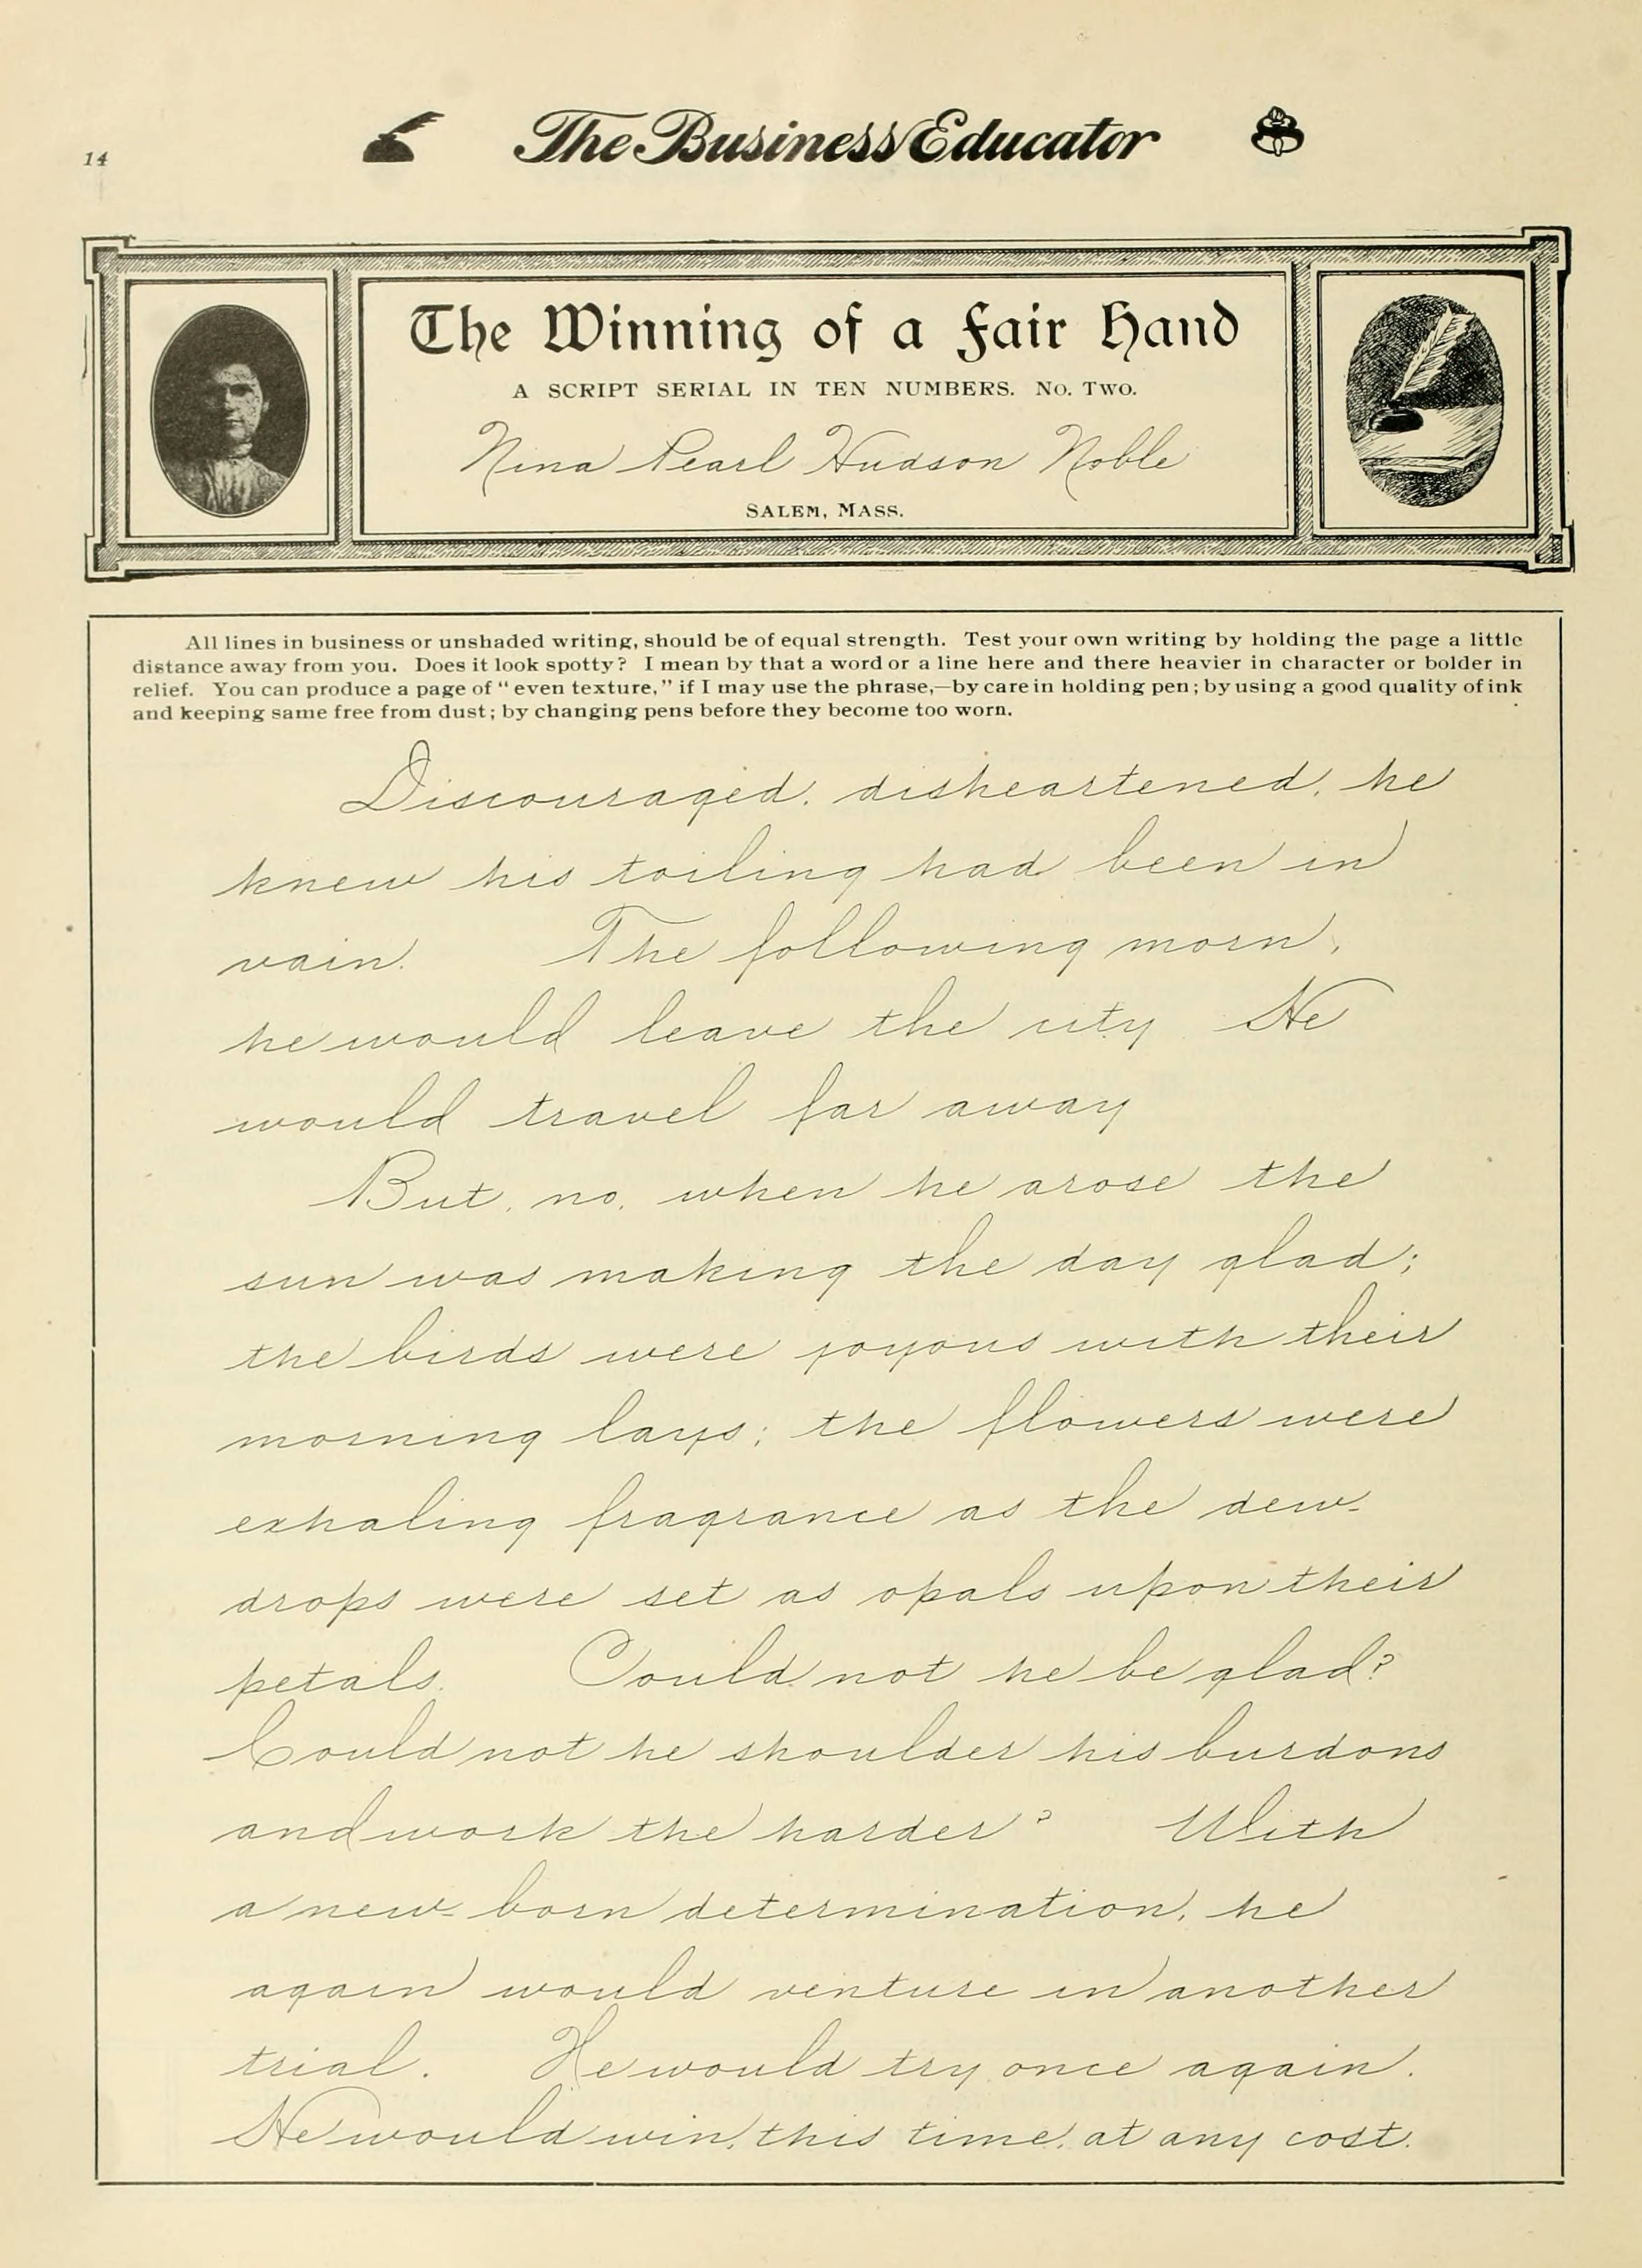 14
The Business Educator
The Winning of a Fair Hand
A SCRIPT SERIAL IN TEN NUMBERS. No. Two.
Nina Pearl Hudson Noble
SALEM, MASS.
All lines in business or unshaded writing, should be of equal strength. Test your own writing by holding the page a little
distance away from you. Does it look spotty? I mean by that a word or a line here and there heavier in character or bolder in
relief. You can produce a page of "even texture," if I may use the phrase,—by care in holding pen; by using a good quality of ink
and keeping same free from dust; by changing pens before they become too worn.
Discouraged, disheartened, he
knew his toiling had been in
vain. The following morn,
he would leave the city He
would travel far away
But, no, when he arose the
sun was making the day glad;
the birds were joyous with their
morning lays; the flowers were
exhaling fragrance as the dew-
drops were set as opals upon their
petals. Could not he be glad?
Could not he shoulder his burdons
and work the harder? With
a new-born determination, he
again would venture in another
trial. He would try once again.
He would win, this time, at any cost.